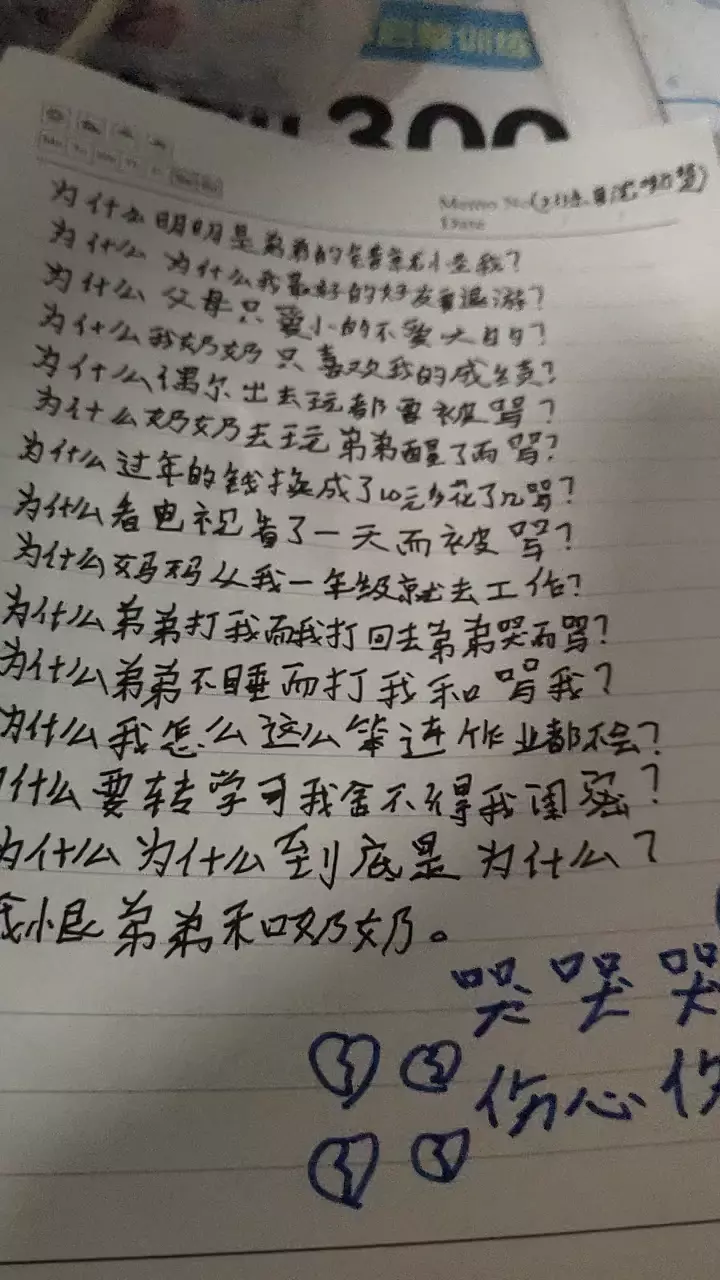 训练
300
Memo No
Date
为什么明明是弟弟的错就怪我?
为什么为什么我最好的好友要退游?
为什么父母只爱小的不爱大的?
为什么我奶奶只喜欢我的成绩?
为什么偶尔出去玩都要被骂?
为什么奶奶去玩弟弟醒了而骂?
为什么过年的钱换成了10元多花了几骂?
为什么看电视看了一天而被骂?
为什么妈妈从我一年级就去工作?
为什么弟弟打我而我打回去弟弟哭而骂?
为什么弟弟不睡而打我和骂我?
为什么我怎么这么笨连作业都不会?
什么要转学可我舍不得我闺蜜?
为什么为什么到底是为什么?
我恨弟弟和奶奶。
哭哭哭
伤心伤